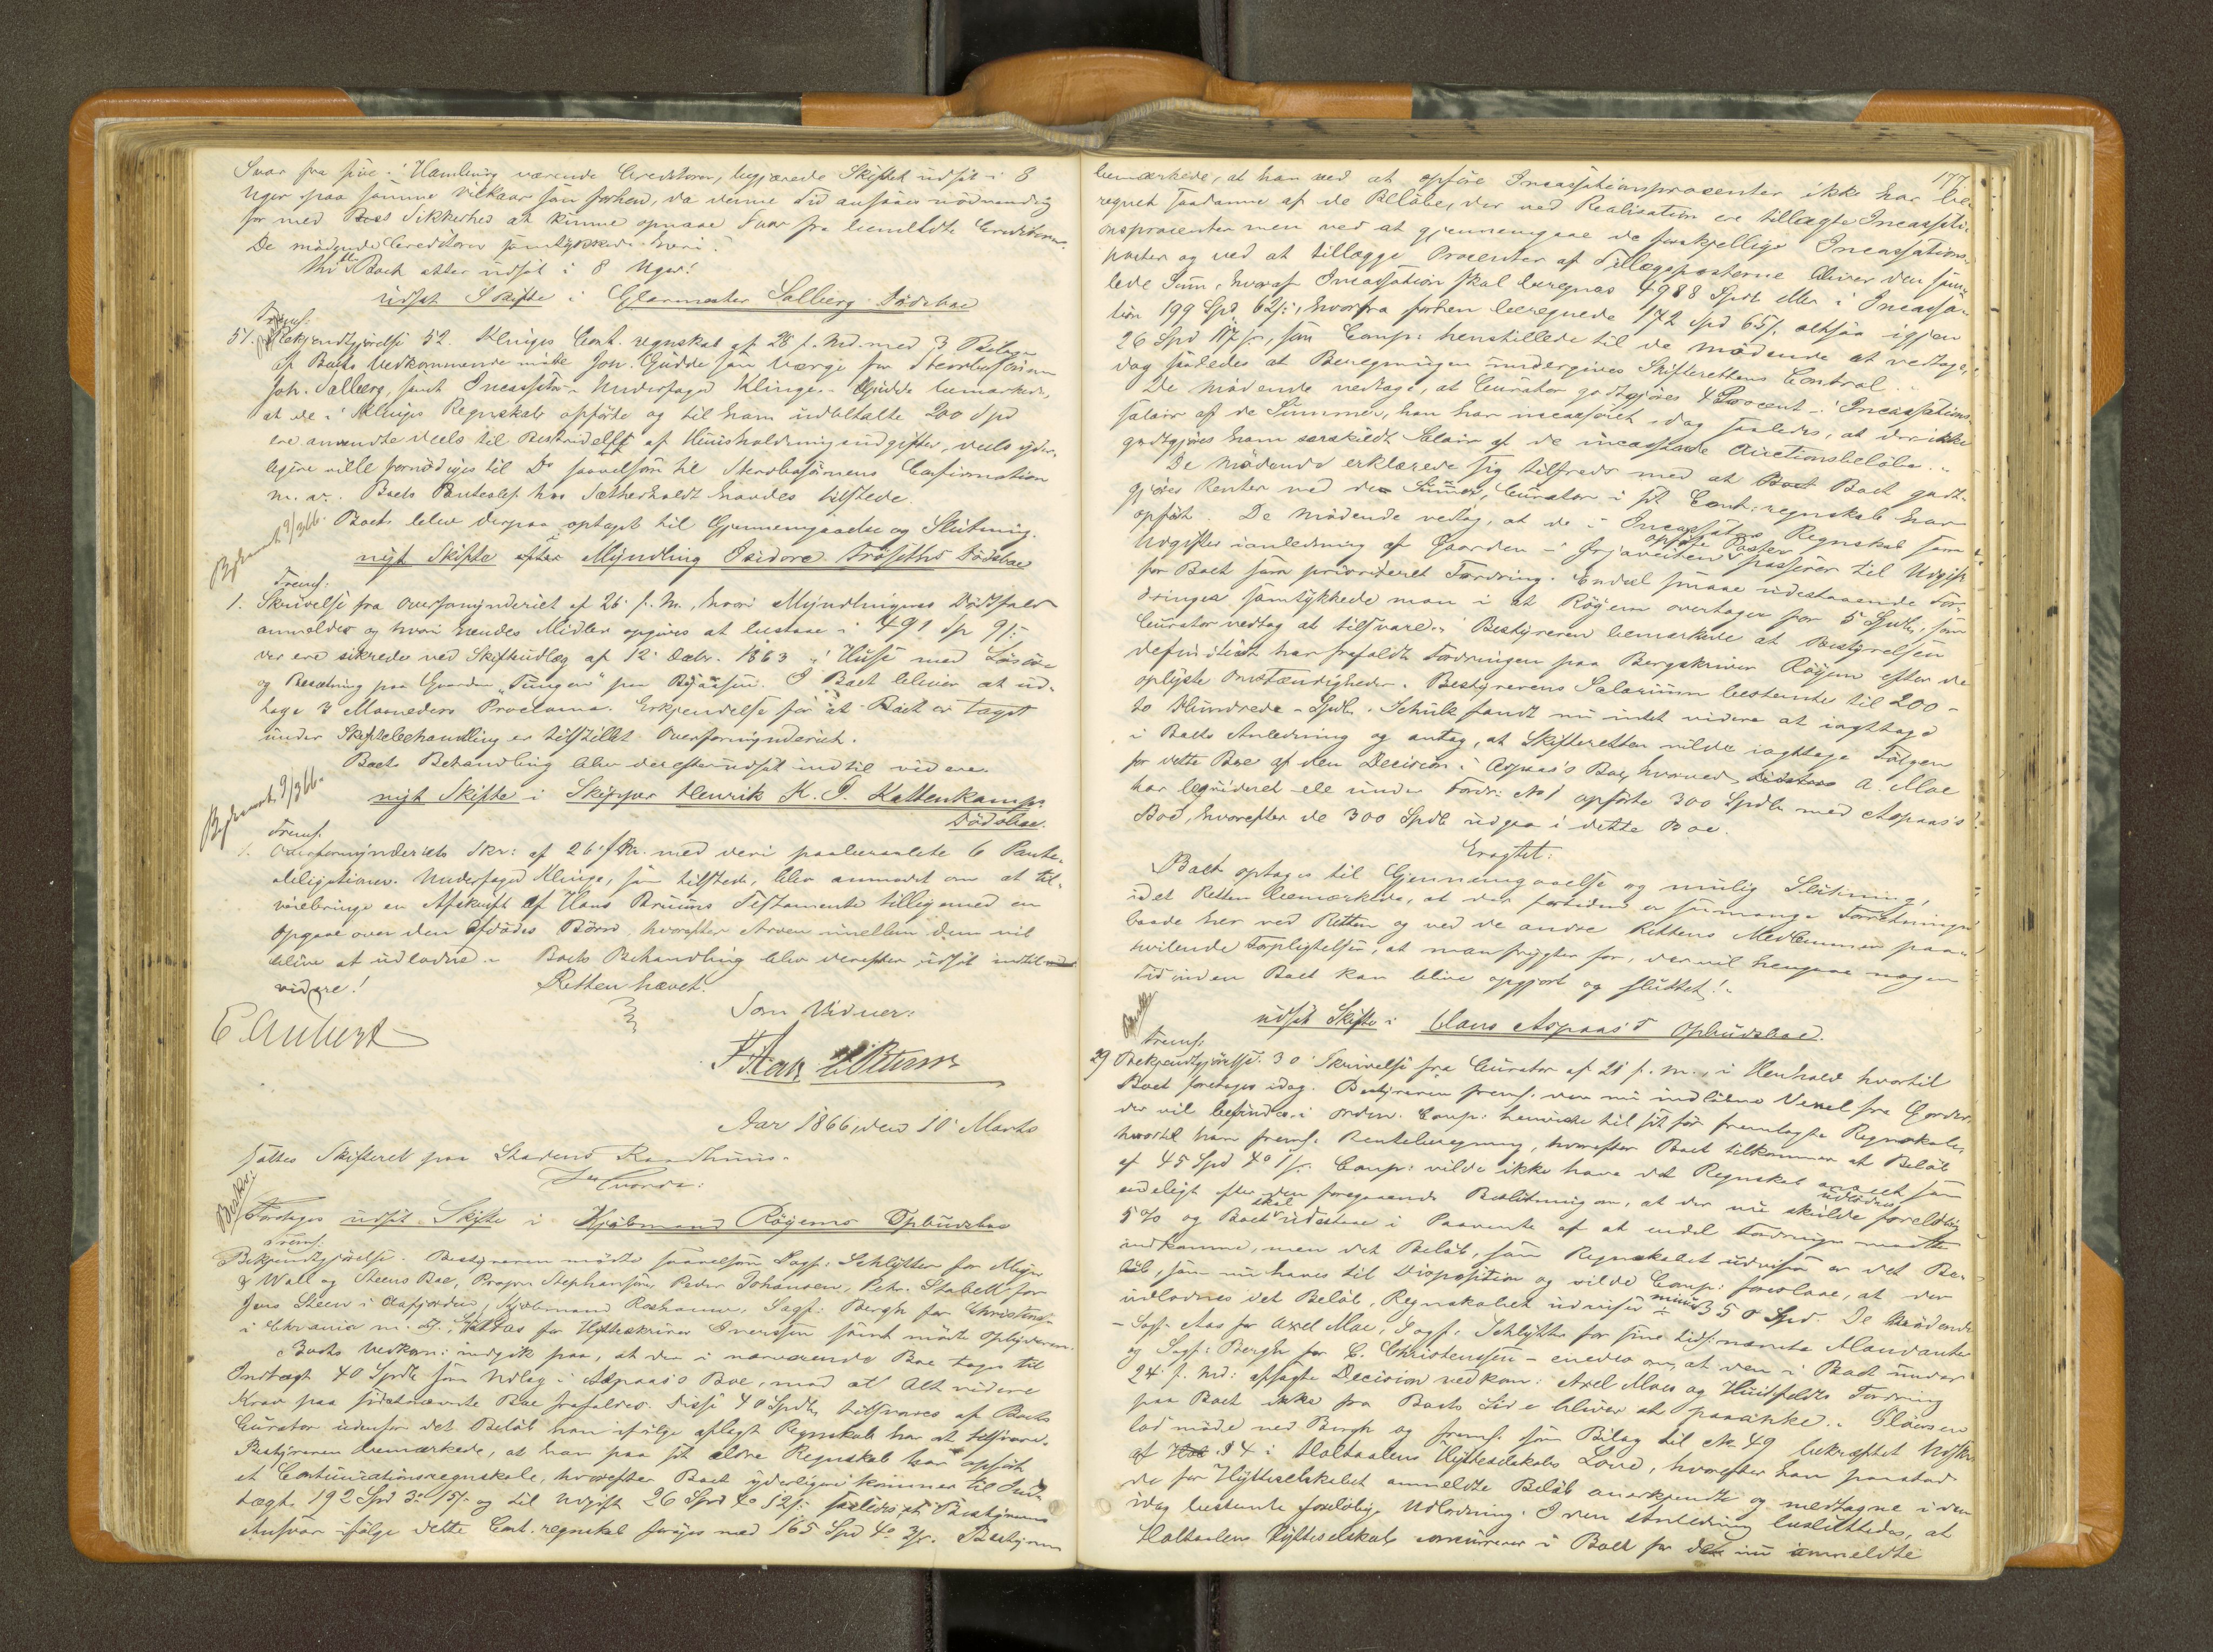 Svar fra sine i Hamburg værende Creditorer, begjærede Skiftet udsat i 8
Uger paa samme Vilkaar som forhen, da denne Tid ansaaes nødvendig
for med Sikkerhed at kunne opnaae Svar fra bemeldte Creditorer.
De mødende Creditorer samtykkede heri.
thi Boet atter udsat i 8 Uger!
udsat Skifte i Glarmester Salberg Dødsboe
Frems:
51. Bekjendtgjørelse 52. Klinges Cont. regnskab af 28 f. Md. med 3 Bilage
Af Boets Vedkommende mødte Joh. Gudde som Værge for Sterbosønnen
Joh. Salberg, samt Incassator Undersaged Klinge. Gudde bemærkede,
at de i Klinges Regnskab opførte og til ham udbetalte 200 Spd
ere anvendte deels til Bestridelse af Huusholdningsudgifter, deels yder-
ligere ville fornødiges til Do saavelsom til Sterbosønnens Confirmation
m. v. Boets Panteobl. hos Sætherholdt havdes tilstede.
Boets blev derpaa optaget til Gjennemgaaelse og Slutning.
Bydamt 9/3 66.
nyt Skifte efter Myndling Isidore Frøseths Dødsboe
Frems:
1. Skrivelse fra Overformynderiet af 26 f. M., hvori Myndlingens Dødsfald
anmeldes og hvori hendes Midler opgives at bestaae i 491 Sp 91 s
der ere sikrede ved Skifteudlæg af 12 Decbr. 1863 i Huse med Løsøre
og Besætning paa Gaarden "Tungen" paa Byaasen. I Boet bliver at ud-
tage 3 Maaneders Proclama. Erkjendelse for at Boet er taget
under Skiftebehandling er tilstillet Overformynderiet.
Boets Behandling blev derefter udsat indtil videre.
Bydamt 9/3 66.
nyt Skifte i Skipper Henrik K. J. Kattenkamps
Dødsboe.
Frems.
1. Overformynderiets Skr: af 26 f. M. med deri paaberaabte 6 Pante-
obligationer. Undersaged Klinge, som tilstede, blev anmodet om at til-
veiebringe en Afskrift af Hans Bruuns Testamente tilligemed en
Opgave over den Afdødes Børn, hvorefter Arven imellem dem vil
blive at udlodde. Boets Behandling blev derefter udsat indtil
videre!
Retten hævet.
E. Aubert
Som Vidner:
Aar 1866, den 10 Marts
sattes Skifteret paa Stadens Raadhuus.
Foretoges udsat Skifte i Kjøbmand Røyems Opbudsboe
Frems.
Bekjendtgjørelse. Bestyreren mødte saavelsom Sagf: Schlytter for Meyer
& Wall og Steens Boe, Brogrer Stephansen, Peder Johansen, Petr. Stabell for
Jens Steen i Aafjorden, Kjøbmand Roshauw, Sagf: Bergh for Christens
i Chrania m. fl., for Hytteskriver Iversen samt mødte Opbyderen.
Boets Vedkom: indgik paa, at der i nærværende Boe toges til
Indtægt 40 Spdlr som Udlæg i Aspaas's Boe, mod at Alt videre
Krav paa sidstnævnte Boe frafaldes. Disse 40 Spdlr tilsvares af Boets
Curator udenfor det Beløb han ifølge aflagt Regnskab har at tilsvare.
Bestyreren bemærkede, at han paa sit ældre Regnskab har opført
et Continuationsregnskab, hvorefter Boet yderligere kommer til Ind-
tægt 192 Spd 3o 15 s og til Udgift 26 Spd 4o 12 s saaledes, at Bestyrerens
Ansvar ifølge dette Cont. regnskab forøges med 165 Spd 4o 3 s. Bestyreren
177
bemærkede, at han ved at opføre Incassationsprocenter ikke har be-
regnet saadanne af de Beløbe, der ved Realisation ere tillagte Incassati-
onsprocenter men ved at gjennemgaae de forskjellige Incassations-
poster og ved at tillægge Procenter af Tillægsposterne bliver den sam-
lede Sum, hvoraf Incassation skal beregnes 4988 Spdlr eller i Incassa-
tion 199 Spd 62 s, hvorfra forhen beregnede 172 Spd 65 s. altsaa igjen
26 Spd 117 s, som Comp: henstillede til de mødende at vedtage i
dag saaledes at Beregningen undergives Skifterettens Control.
De mødende vedtage, at Curator godtgjøres 4 Procent i Incassations-
salair af de Summer, han har incasseret, dog saaledes, at der ikke
godtgjøres ham særskildt Salair af de incasserede Auctionsbeløb.
De Mødende erklærede sig tilfreds med at Boet godt-
gjøres Renter ved de Summer, Curator i sit Cont: regnskab har
opført. De Mødende vedtog, at de i Incassators Regnskab som
Udgifter ianledning af Gaarden i Ørjaveiten opførte Poster passerer til Udgift
for Boet som prioriteret Fordring. Endeel smaae udestaaende For-
dringer samtykkede man i at Røyem overtager for 5 Spdlr, som
Curator vedtog at tilsvare. Bestyreren bemærkede at Bestyrelsen
definitivt har frafaldt Fordringen paa Bergskriver Røyem efter de
oplyste Omstændigheder. Bestyrerens Salarium bestemtes til 200 -
to Hundrede - Spdlr. Schulz fandt nu intet videre at iagttage
i Boets Anledning og antog, at Skifteretten vilde iagttage Følgen
for dette Boe af den Decision i Aspaas's Boe, hvorved A. Moe
har liqvideret de under Fordr: No 1 opførte 300 Spdlr med Aspaas's
Boe, hvorefter de 300 Spdlr udgaa i dette Boe.
Eragtet:
Boet optages til Gjennemgaaelse og mulig Slutning,
idet Retten bemærkede, at der fortiden er saamange Forretninger
baade her ved Retten og ved de andre Rettens Medlemmer paa-
hvilende Forpligtelser, at man frygter for, der vil hengaae nogen
Tid inden Boet kan blive opgjort og sluttet!
udsat Skifte i Claus Aspaas's Opbudsboe.
Frems.
29 Bekjendtgjørelse. 30 Skrivelse fra Curator af 21 f. M., i Henhold hvortil
Boet foretages idag. Bestyreren frems. den nu indløbne Vexel fra Gorder,
der vil befindes i Orden. Comp: henviste til sit før fremlagte Regnskab,
hvortil han frems. Renteberegning, hvorefter Boet tilkommer et Beløb
af 45 Spd 4o 1 s. Comp: vilde ikke have det Regnskab anseet som
endeligt efter den foregaaende Beslutning om, at der nu skulde foreløbig udloddes
5 % og Boet skal udestaae i Paavente af at endel Fordringer maatte
indkomme, men det Beløb, som Regnskabet udviser er det Be-
løb, som nu haves til Disposition og vilde Comp: foreslaae, at der
udloddes det Beløb, Regnskabet udviser minus 350 Spd. De Mødende
- Sagf. Aas for Axel Moe, Sagf. Schlytter for sine tidl: nævnte Mandanter
og Sagf: Bergh for C. Christenssen - enedes om, at den i Boet under
24 f. Md: afsagte Decision vedkom: Axel Moes og Huitfeldts Fordring
paa Boet ikke fra Boets Side bliver at paaanke. Gløersen
lod møde ved Bergh og frems. som Bilag til No 49 bekræftet Udskr.
af § 4 i Holtaalens Hytteselskabs Love, hvorefter han paastod
de for Hytteselskabet anmeldte Beløb anerkjendte og medtagne i den
idag bestemte foreløbige Udlodning. I den Anledning besluttedes, at
Holtaalens Hytteselskab concurrerer i Boet for det nu anmeldte